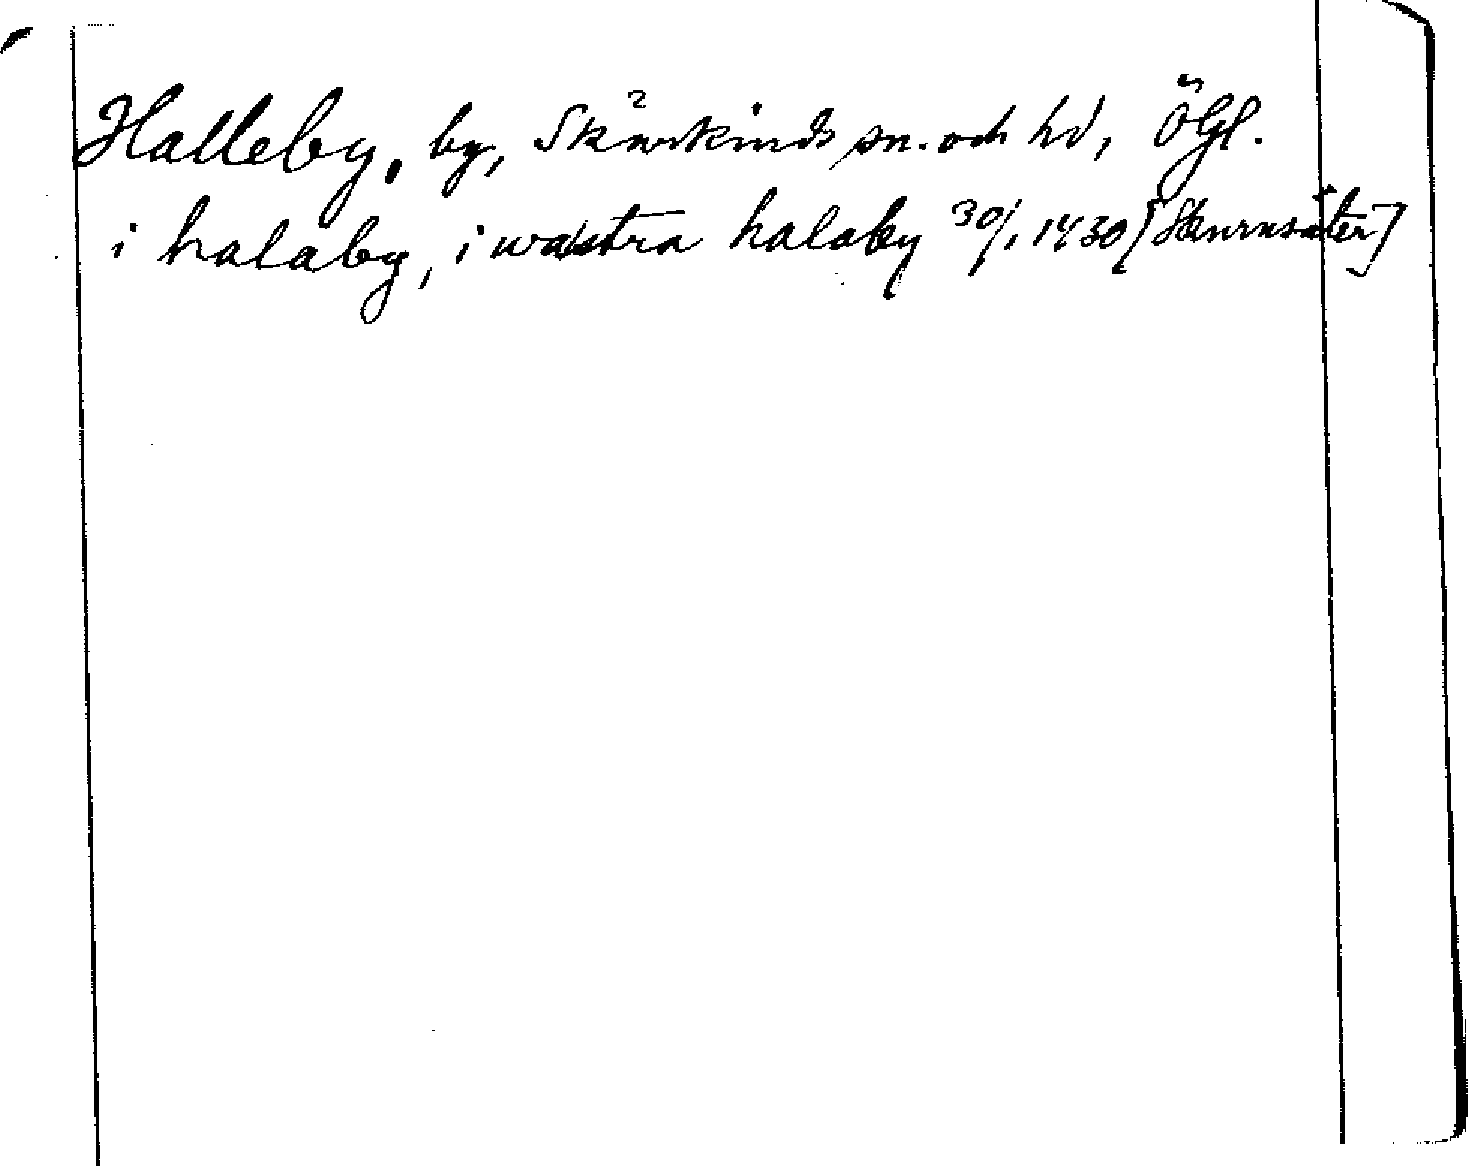 Halleby, by, Skärkinds sn. och hd, Ögl.
i halaby, i wæstra halaby 30/1 1430 [Skurusäter]